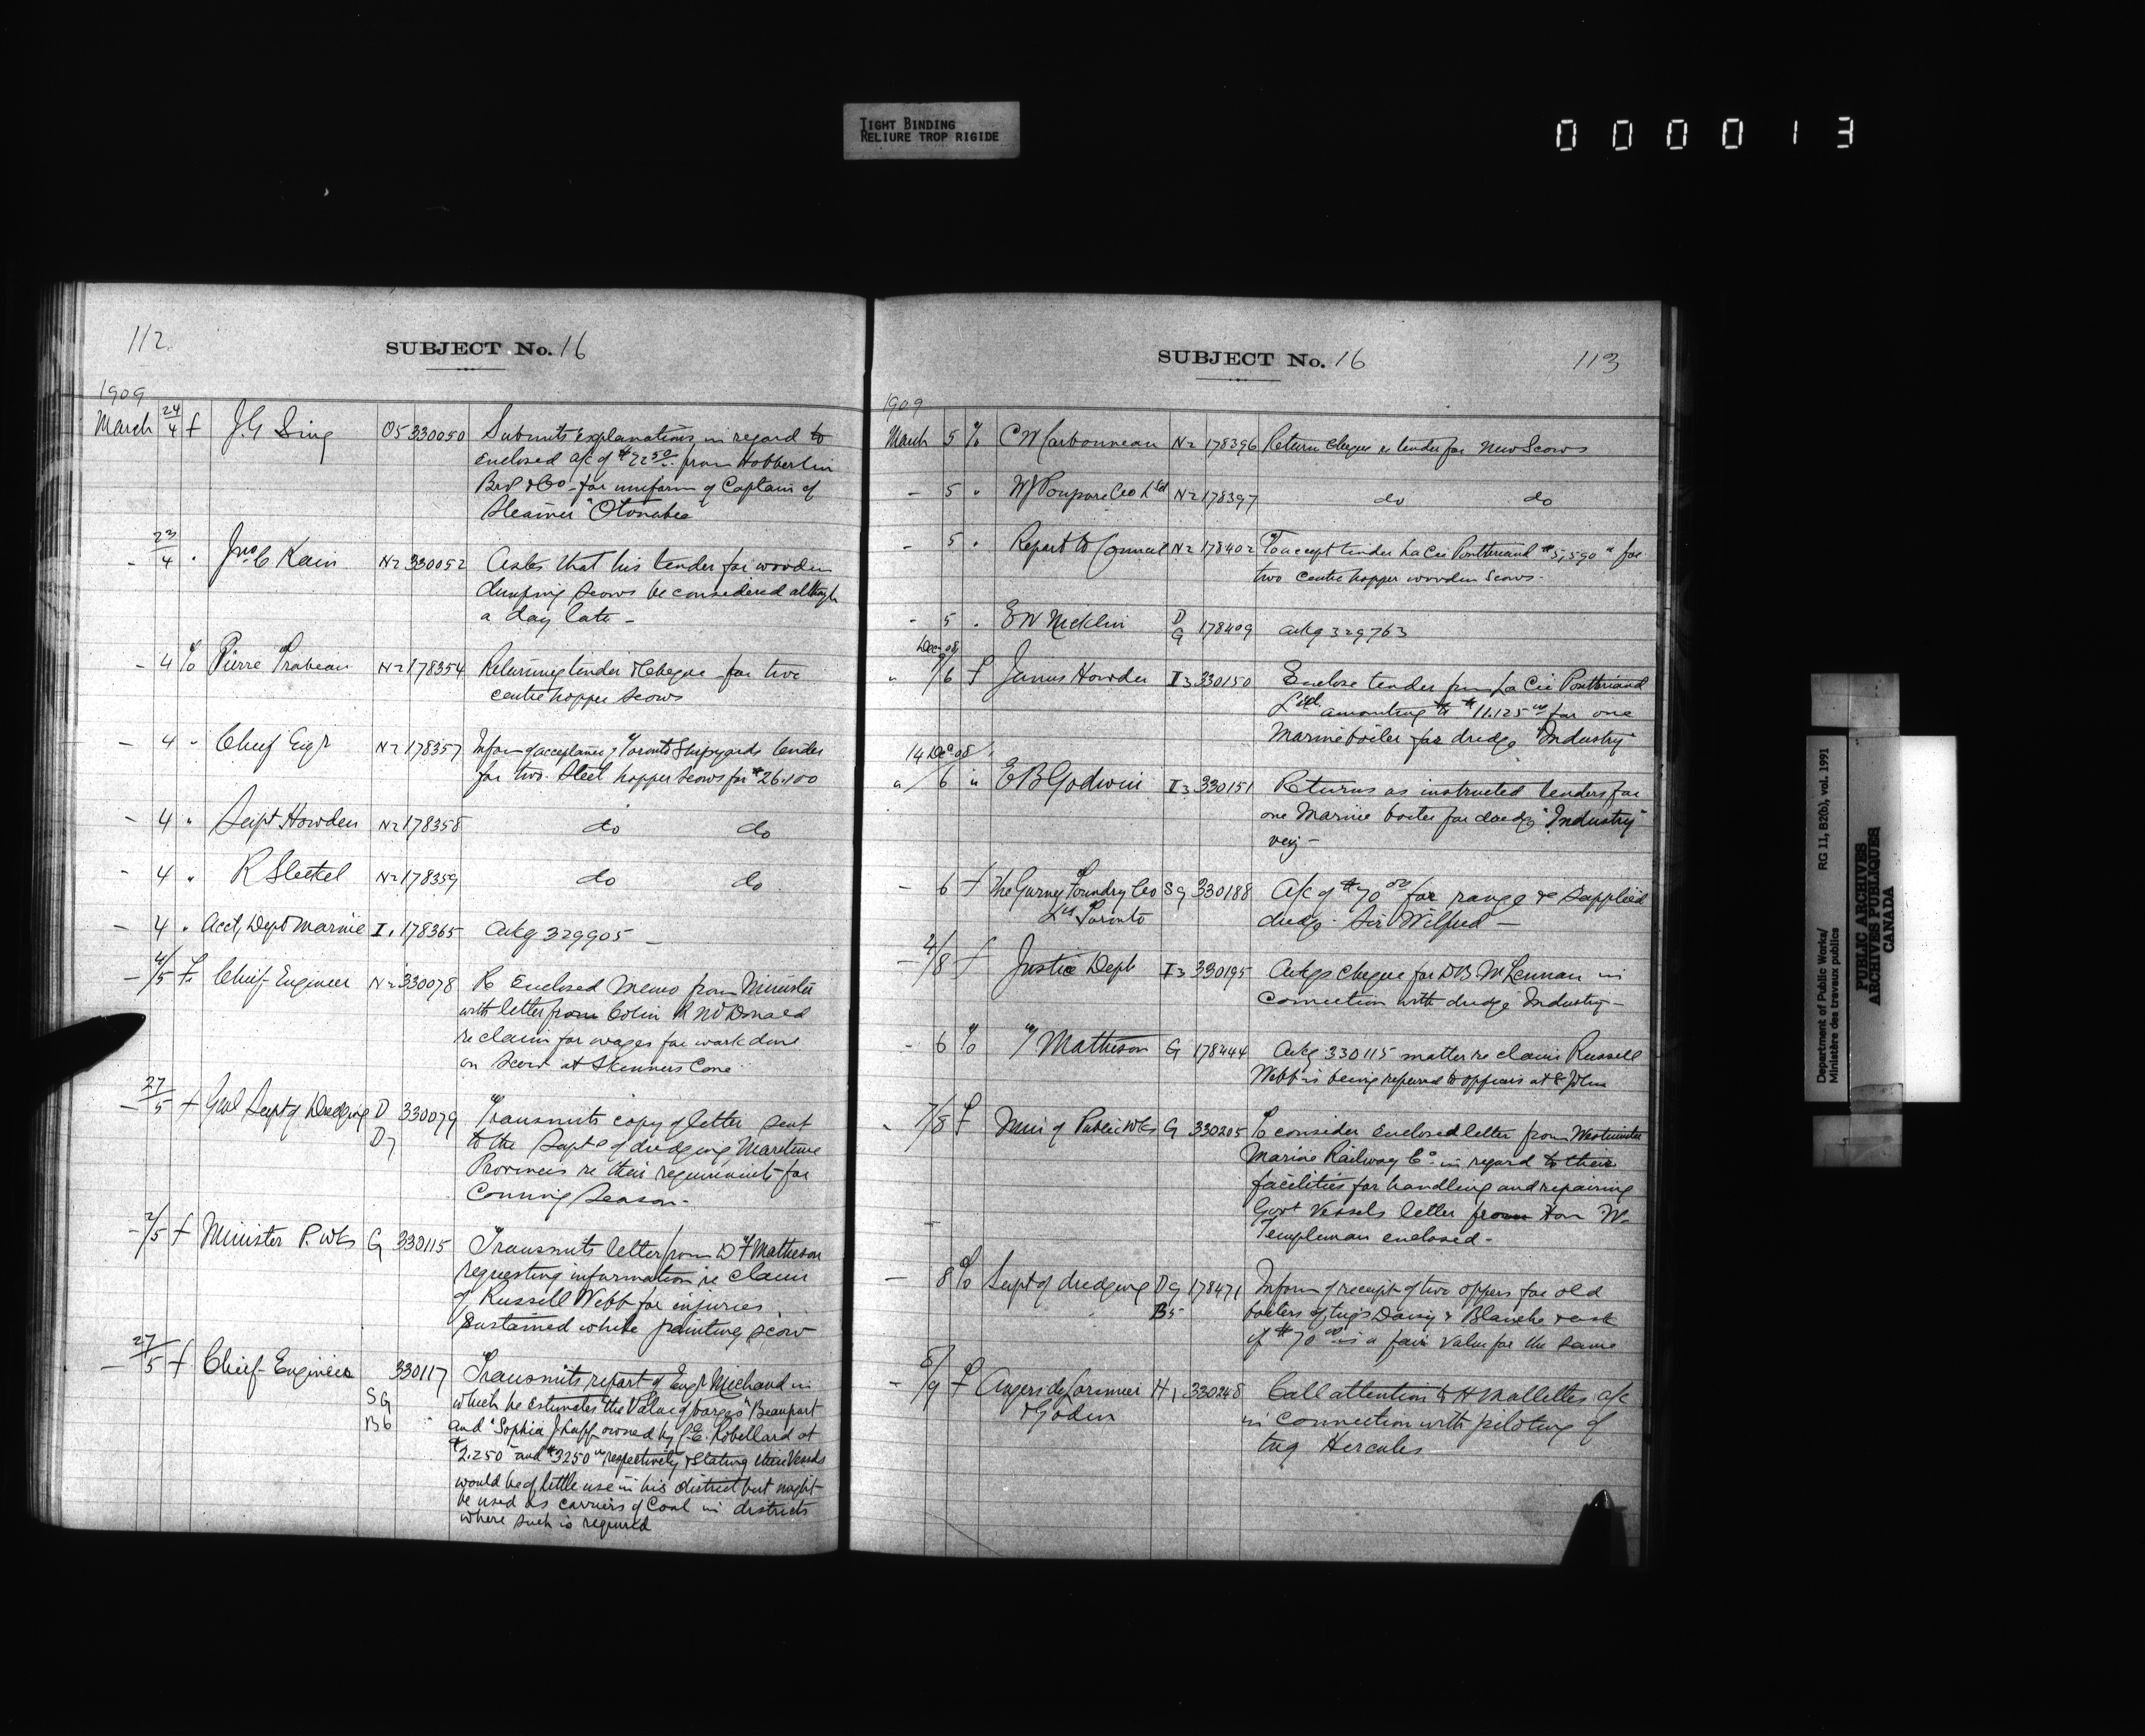 TIGHT BINDING
RELIURE TROP RIGIDE
000013
112
SUBJECT No. 16
1909
March 24/4 f J.G Sing O5 330050 Submits explanations in regard to
enclosed a/c of $22.50 from Hobberlin
Bros & Co for uniform of Captain of
Steamer "Otonabee
- 23/4 " Jno C Kain N2 330052 Asks that his tender for wooden
dumping scows be considered although
a day late -
- 4 % Pierre Trabean N2 178354 Returning tender & cheque for two
centre hopper scows
- 4 " Chief Engr N2 178357 Inform of acceptance of Toronto Shipyards tender
for two steel hopper scows for $26,100
- 4 " Supt Howden N2 178358 do do
- 4 " R Steckel N2 178359 do do
- 4 " Acct, Dept Marine I1 178365 Ackg 329905 -
- 4/5 f Chief Engineer N2 330078 Re Enclosed memo from Minister
with letter from Colin R McDonald
re claim for wages for work done
on scow at Skinners Cove
- 27/5 f Genl Supt of Dredging D 330079 Transmits copy of letter sent
D7 to the Supts of dredging Maritime
Provinces re their requirements for
Coming Season -
- 2/5 f Minister P. Wks G 330115 Transmits letter from D F Matheson
requesting information re claim
of Russell Webb for injuries
sustained while painting scow
- 27/5 f Chief Engineer 330117 Transmits report of Engr Michaud in
SG which he estimates the value of barges "Beauport
B6 and "Sophia J. Luff owned by J.E. Robellard at
$2.250 and $3250 respectively & stating these vessels
would be of little use in his district but might
be used as carriers of Coal in districts
where such is required
SUBJECT No. 16
113
1909
March 5 % C W Carbonneau N2 178396 Return cheque & tender for new Scows
- 5 " W J Poupore Co Ltd N2 178397 do do
- 5 " Report to Council N2 178402 To accept tender La Cie Pontbriand $5,590 for
two centre hopper wooden scows -
- 5 " E W Nicklin D G 178409 ackg 329763
Dec 08
" 9/6 f James Howden I3 330150 Enclose tender from La Cie Pontbriand
Ltd amounting to $11.125 00 for one
Marine boiler for dredge "Industry"
14 Dec 08
" / 6 " E B Godwin I3 330151 Returns as instructed tenders for
one Marine boiler for dredge "Industry"
- 6 f The Gurney Foundry Co SG 330188 A/c of $70 00 for range &c supplied
Ld Toronto dredge Sir Wilfred -
- 4/8 f Justice Dept I3 330195 Ackgs cheque for D B McLennan in
connection with dredge Industry -
- 6 % Matheson G 178444 Ackg 330115 matter re claim Russell
Webb is being referred to officers at St John
" 7/8 f Min of Public Wks G 330205 To consider enclosed letter from Westminster
Marine Railway Co in regard to their
facilities for handling and repairing
Govt Vessels letter from Hon W.
Templeman enclosed -
- 8 % Supt of dredging DG 178471 Inform of receipt of two offers for old
B5 boilers of tugs Daisy & Blanche & ask
if $70 00 is a fair value for the same
- 8/9 f Angers de Lorimier H1 330248 Call attention to H Mallettes a/c
& Godin in connection with piloting of
tug Hercules
Department of Public Works/ RG 11, B2(b), vol. 1991
Ministère des travaux publics
PUBLIC ARCHIVES
ARCHIVES PUBLIQUES
CANADA